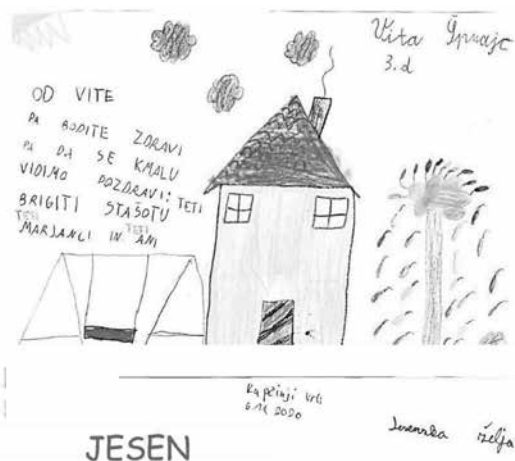 Vita Špnajc
3.d
OD VITE
PA BODITE ZDRAVI
PA DA SE KMALU
VIDIMO POZDRAVI: TETI
BRIGITI STAŠOTU
TETI TETI
MARJANCI IN ANI
Kapčinji Vrh
2020
Jesenska želja
JESEN